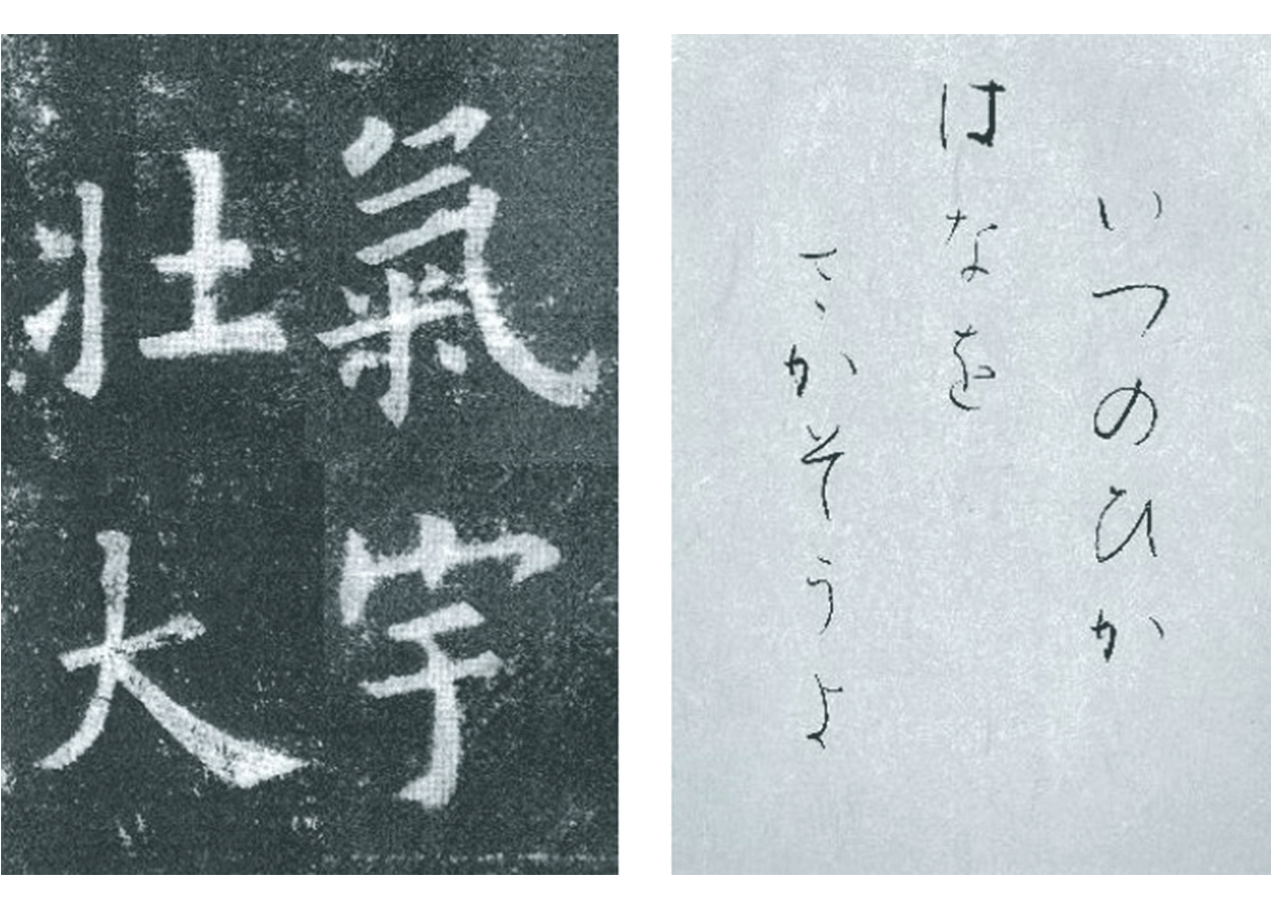 氣宇
壮大
いつのひか
はなを
さかそうよ